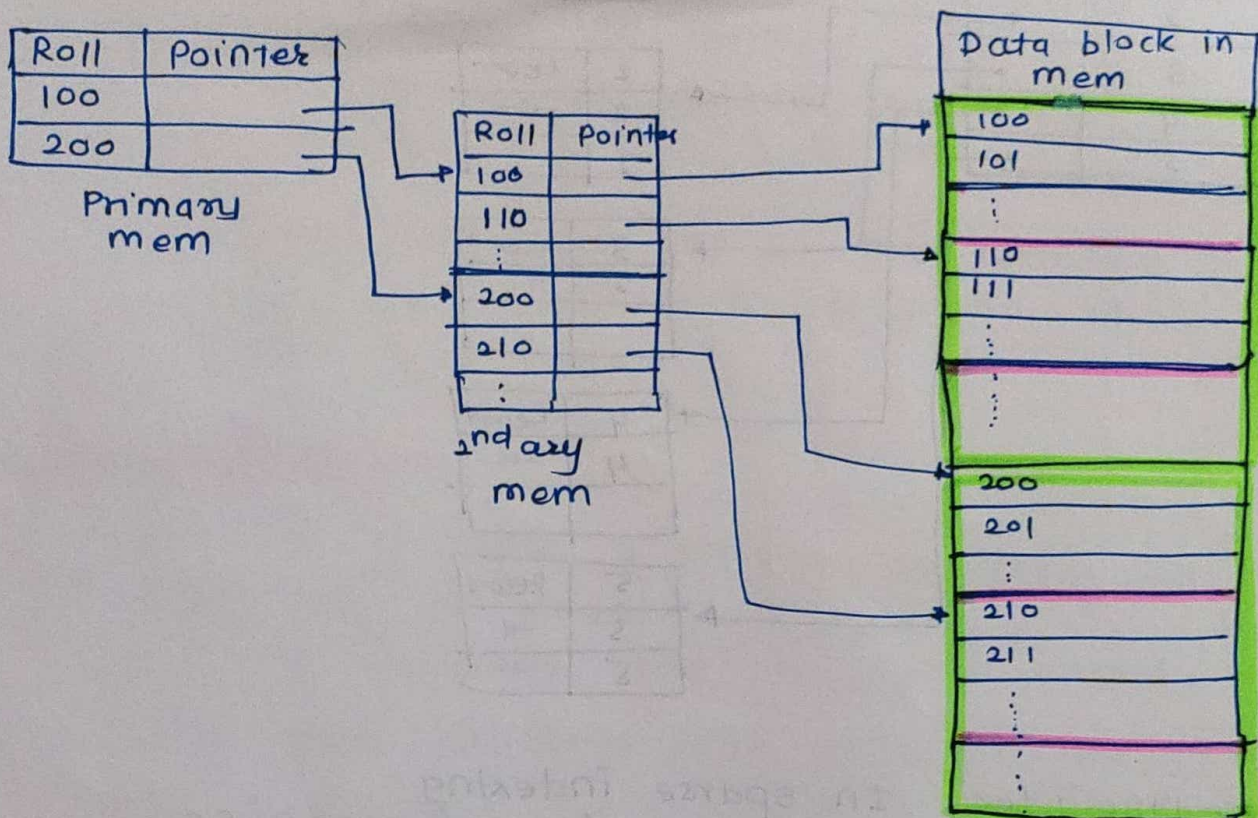 Roll Pointer
100
200
Primary
mem
Roll Pointer
100
110
⋮
200
210
⋮
2nd ary
mem
Data block in
mem
100
101
⋮
110
111
⋮
⋮
200
201
⋮
210
211
⋮
⋮
In sparse indexing